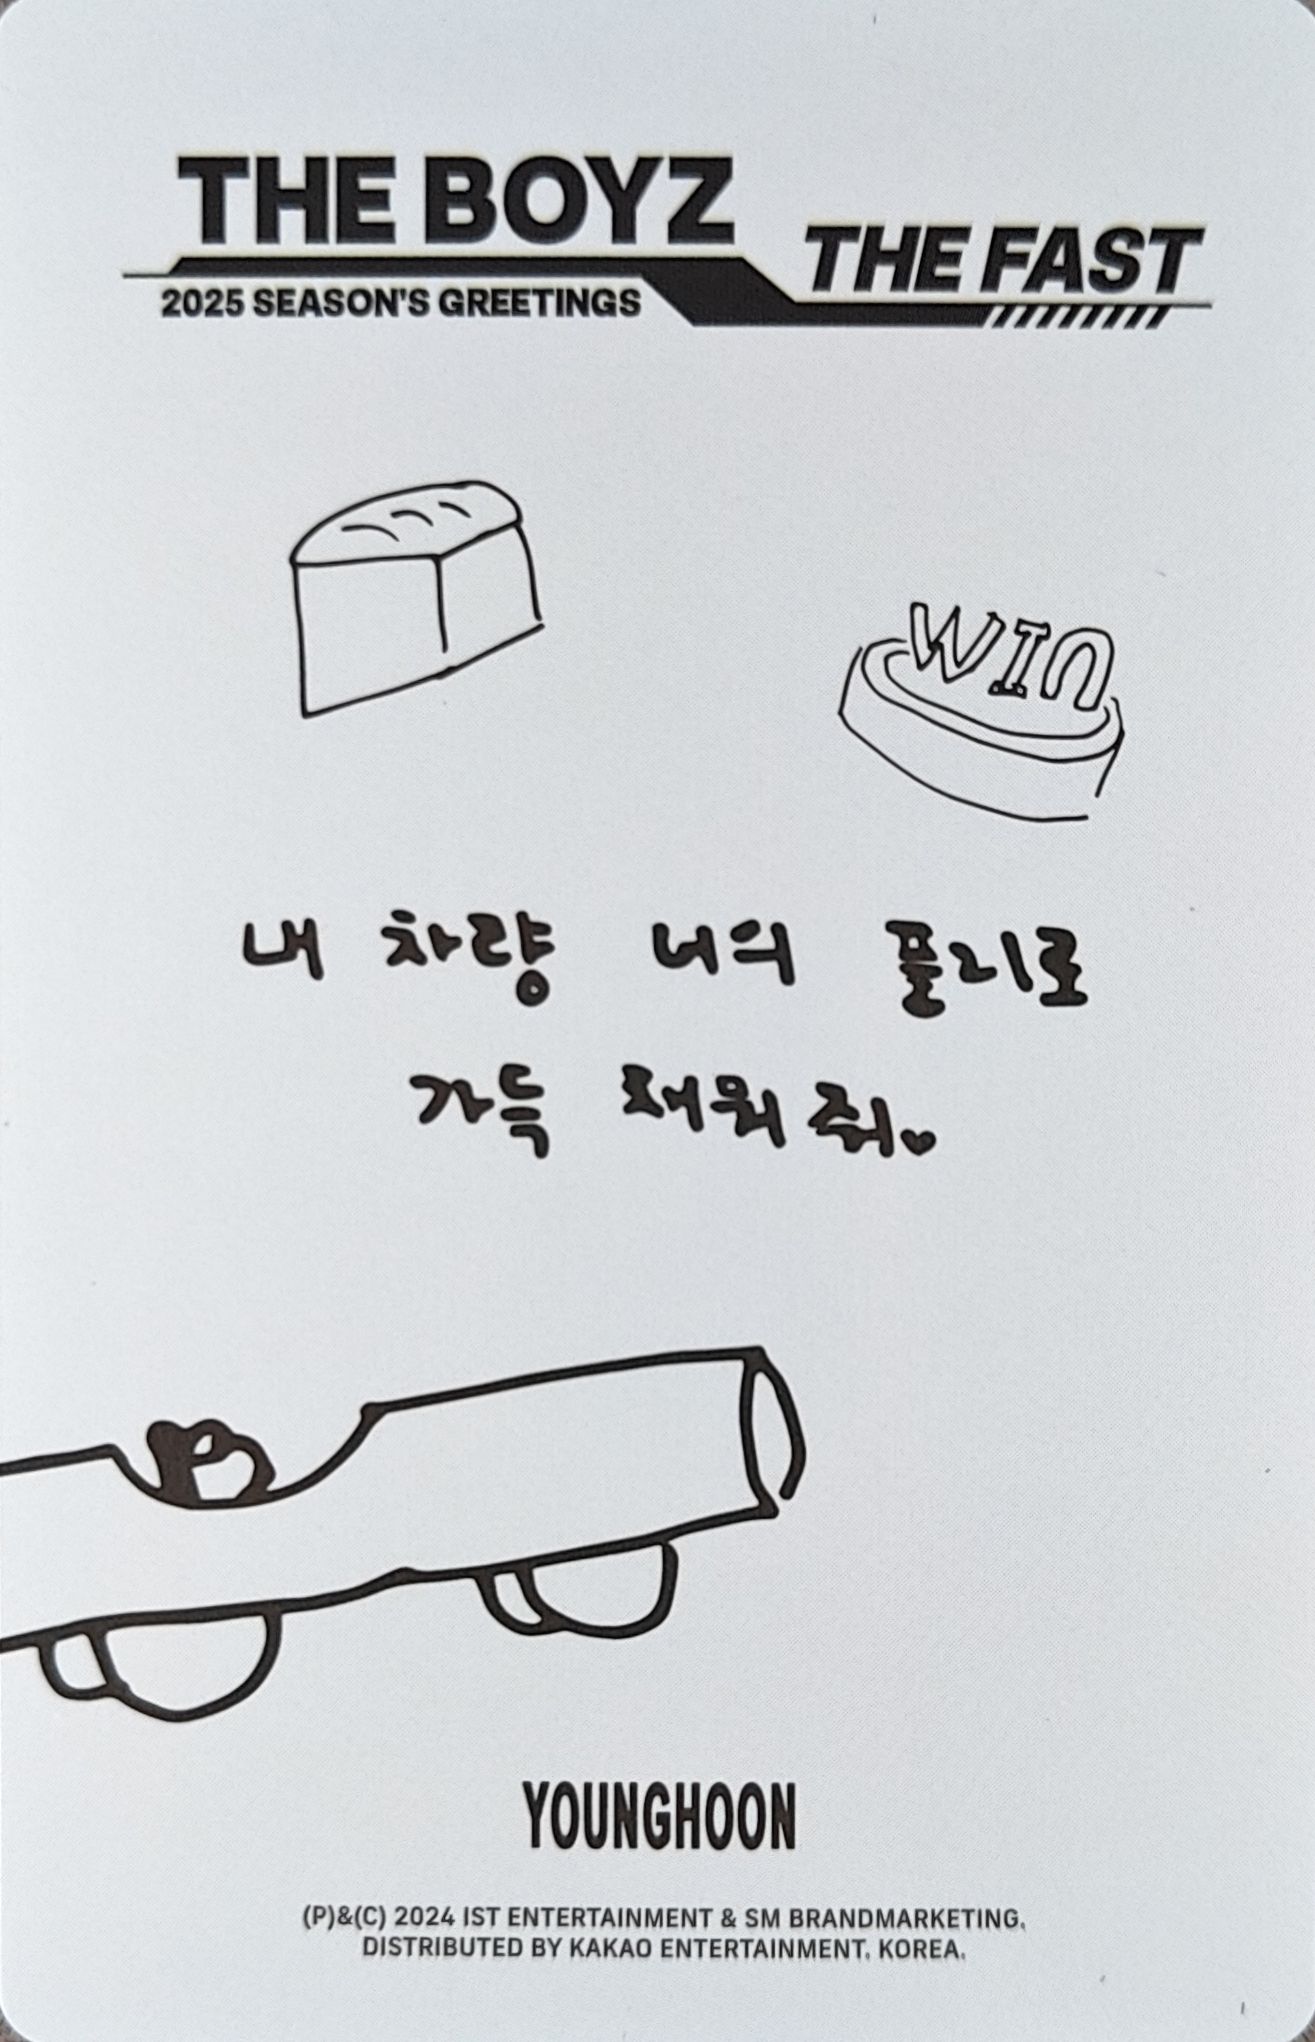 THE BOYZ
THE FAST
2025 SEASON'S GREETINGS
WIN
내 차량 너의 플리로
가득 채워줘♥
YOUNGHOON
(P)&(C) 2024 IST ENTERTAINMENT & SM BRANDMARKETING.
DISTRIBUTED BY KAKAO ENTERTAINMENT. KOREA.